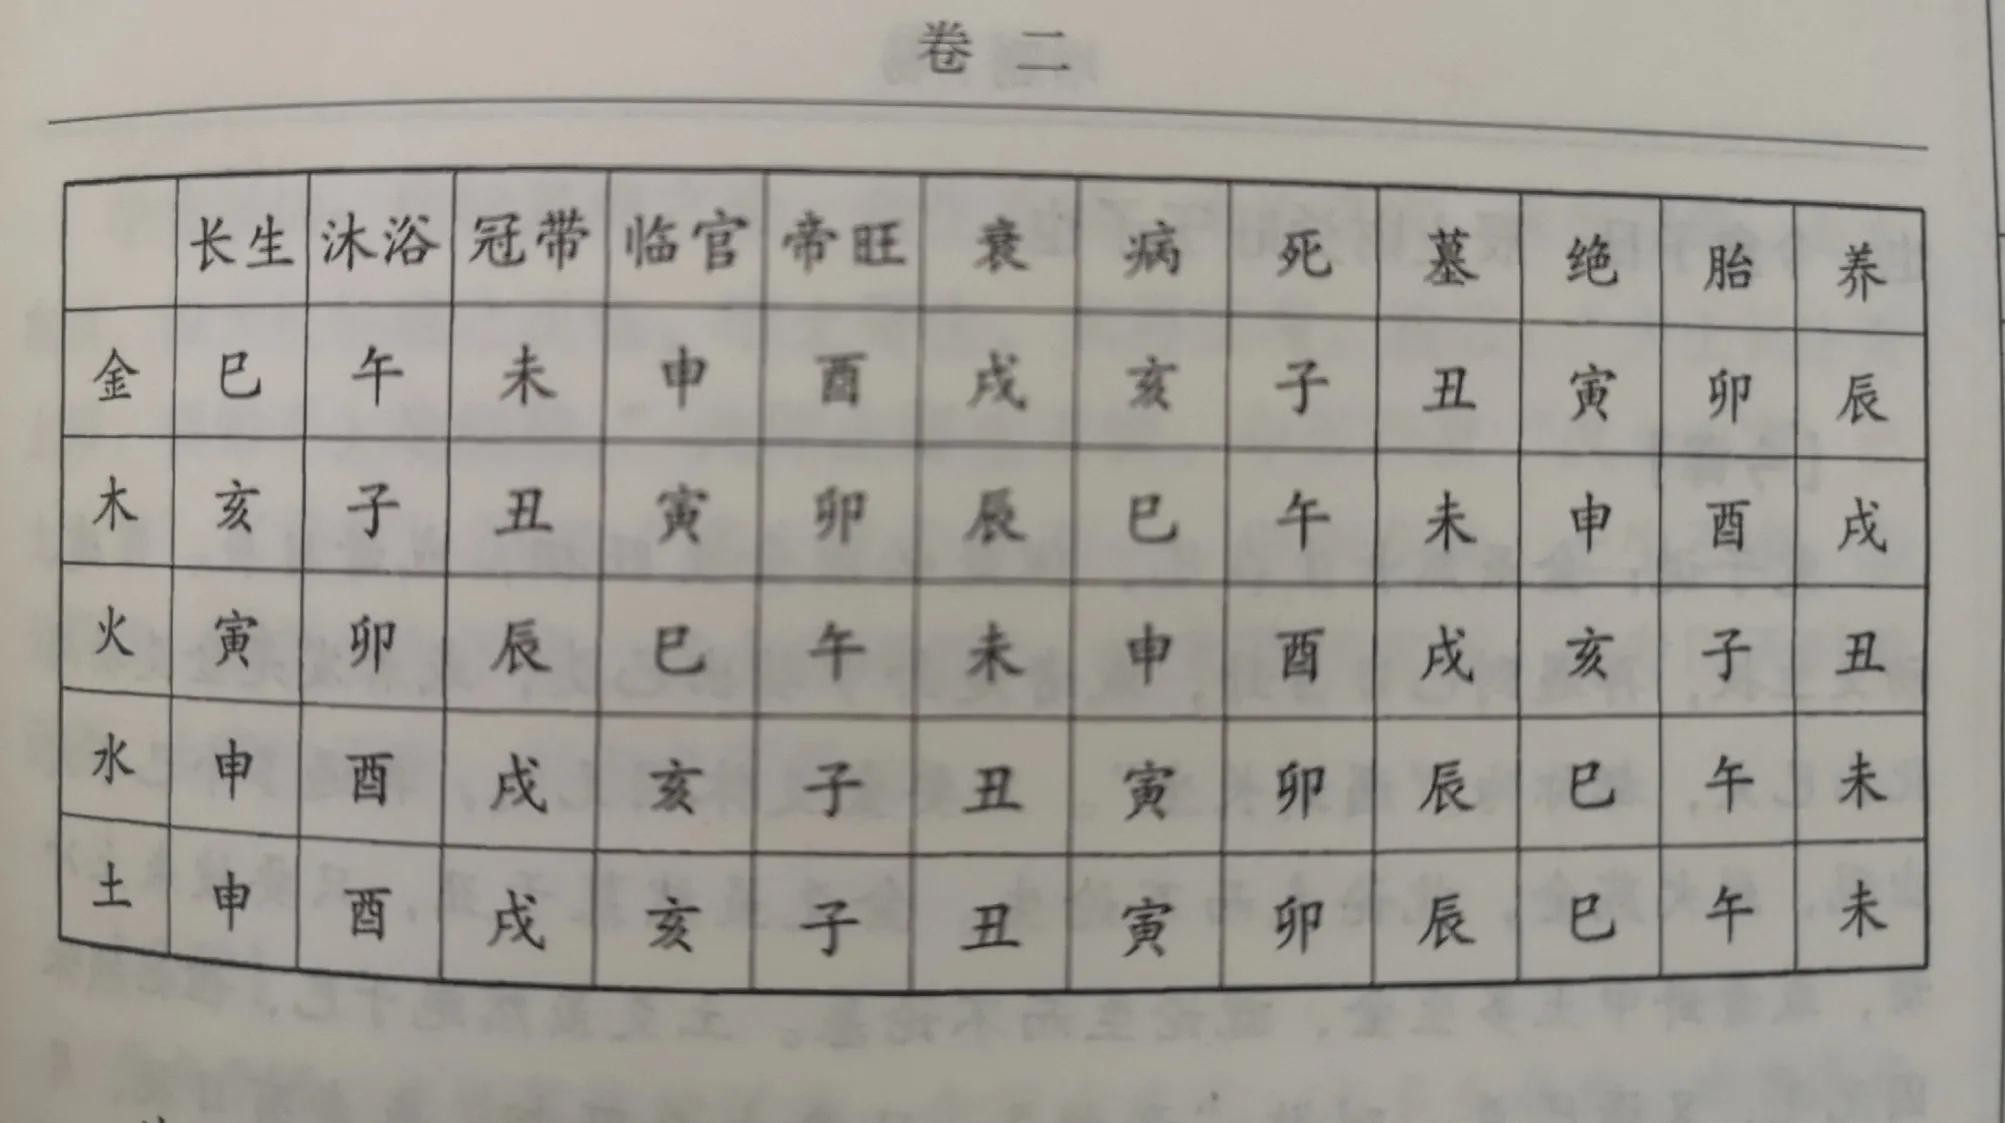 卷 二
长生 沐浴 冠带 临官 帝旺 衰 病 死 墓 绝 胎 养
金 巳 午 未 申 酉 戌 亥 子 丑 寅 卯 辰
木 亥 子 丑 寅 卯 辰 巳 午 未 申 酉 戌
火 寅 卯 辰 巳 午 未 申 酉 戌 亥 子 丑
水 申 酉 戌 亥 子 丑 寅 卯 辰 巳 午 未
土 申 酉 戌 亥 子 丑 寅 卯 辰 巳 午 未